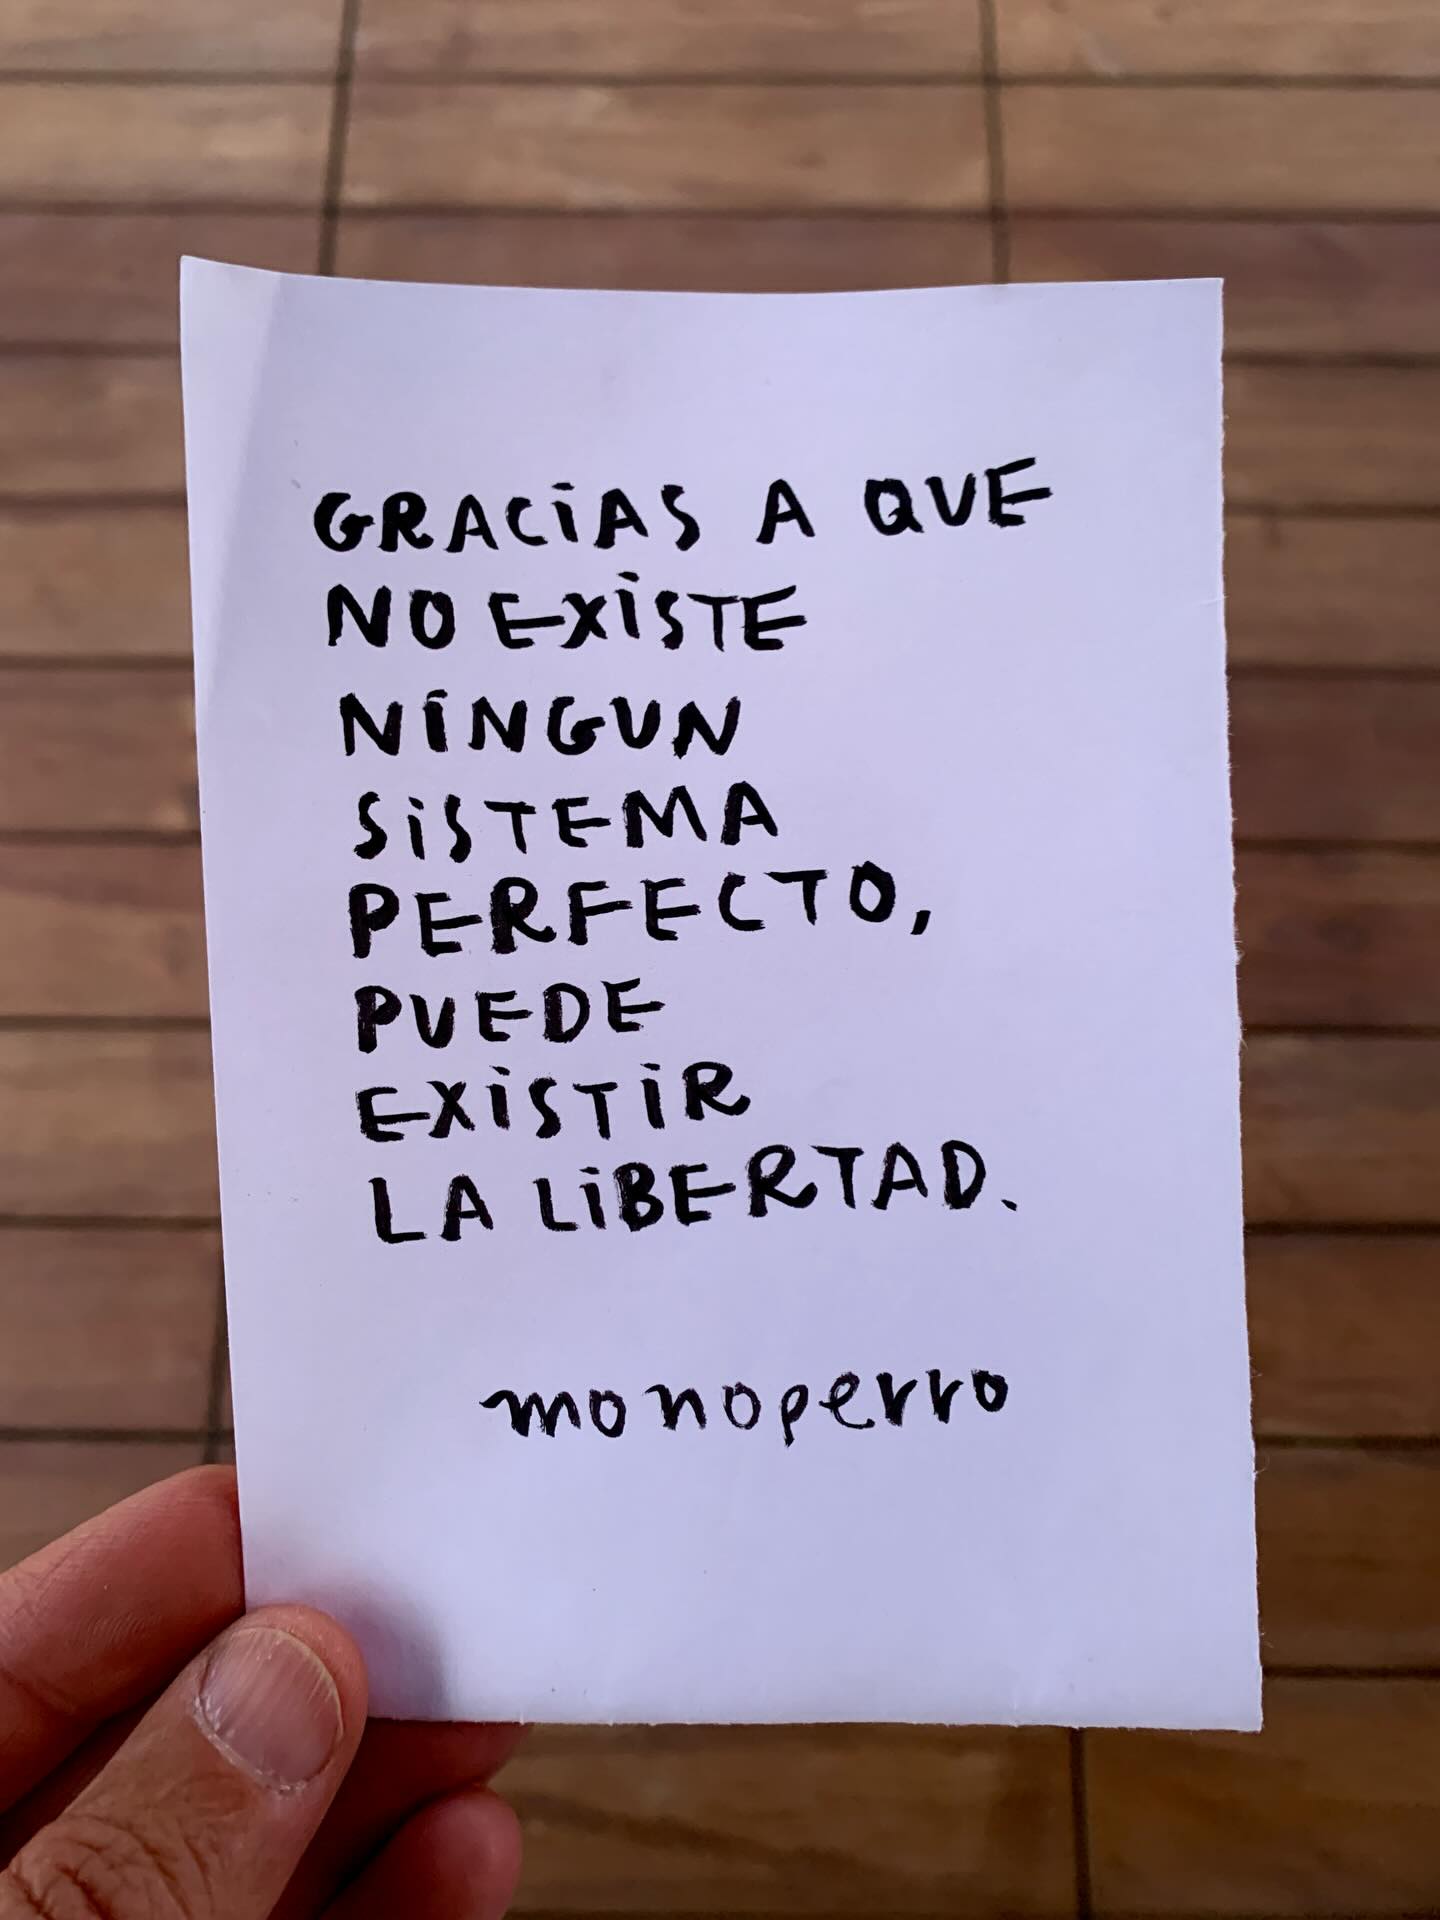 GRACiAS A QUE
NO EXiSTE
NiNGUN
SiSTEMA
PERFECTO,
PUEDE
EXiSTiR
LA LiBERTAD.
monoperro